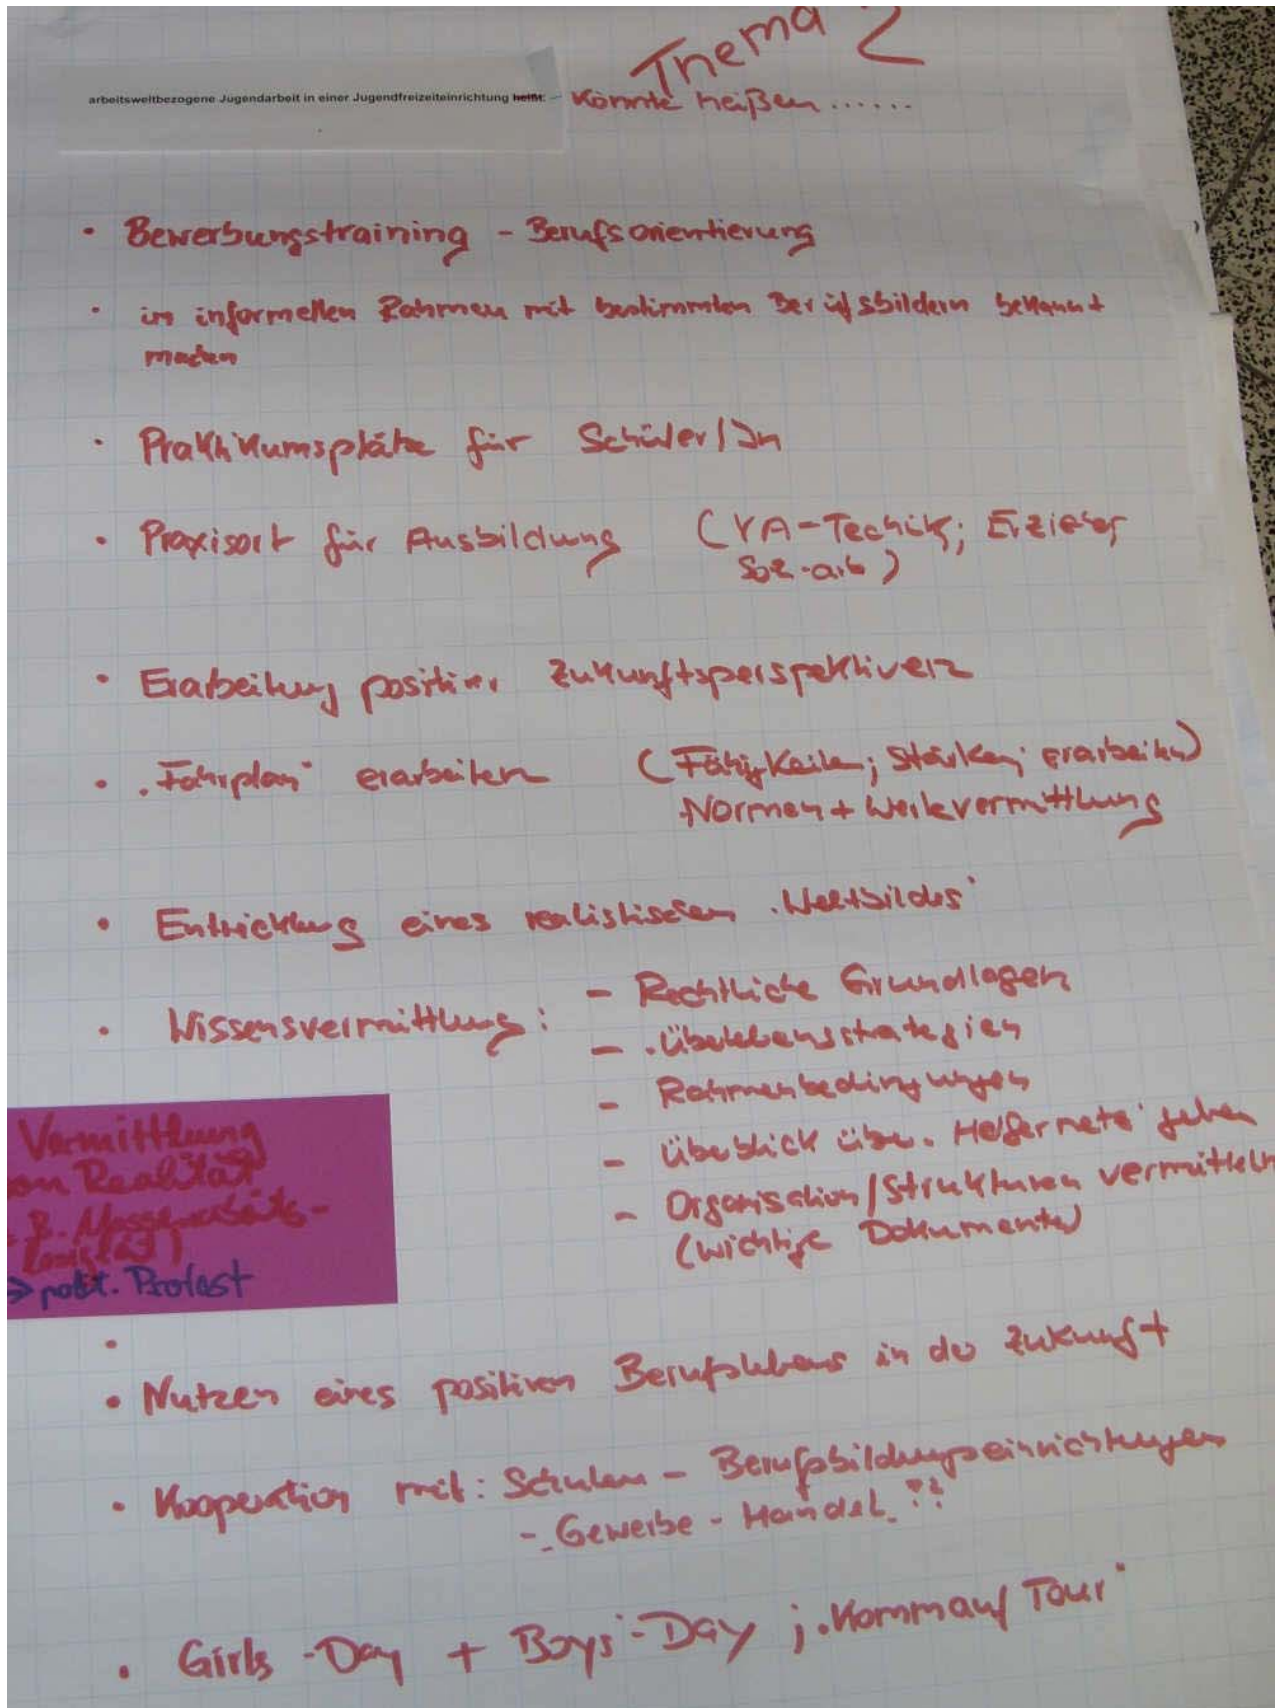 Thema 2
arbeitsweltbezogene Jugendarbeit in einer Jugendfreizeiteinrichtung heißt: – könnte heißen ......
• Bewerbungstraining – Berufsorientierung
• im informellen Rahmen mit bestimmten Berufsbildern bekannt
machen
• Praktikumsplätze für Schüler/In
• Praxisort für Ausbildung (VA-Technik; Erzieher
Soz.-arb)
• Erarbeitung positiver Zukunftsperspektiven
• "Fahrplan" erarbeiten (Fähigkeiten; Stärken; erarbeiten)
Normen + Wertevermittlung
• Entwicklung eines realistischen "Weltbildes"
• Wissensvermittlung: – Rechtliche Grundlagen
– "Überlebensstrategien
– Rahmenbedingungen
– Überblick über "Helfernetz" geben
– Organisation/Strukturen vermitteln
(wichtige Dokumente)
Vermittlung
on Realität
. B.
→ polit. Protest
•
• Nutzen eines positiven Berufslebens in der Zukunft
• Kooperation mit: Schulen – Berufsbildungseinrichtungen
– Gewerbe – Handel ??
• Girls-Day + Boys-Day ; "Komm auf Tour"